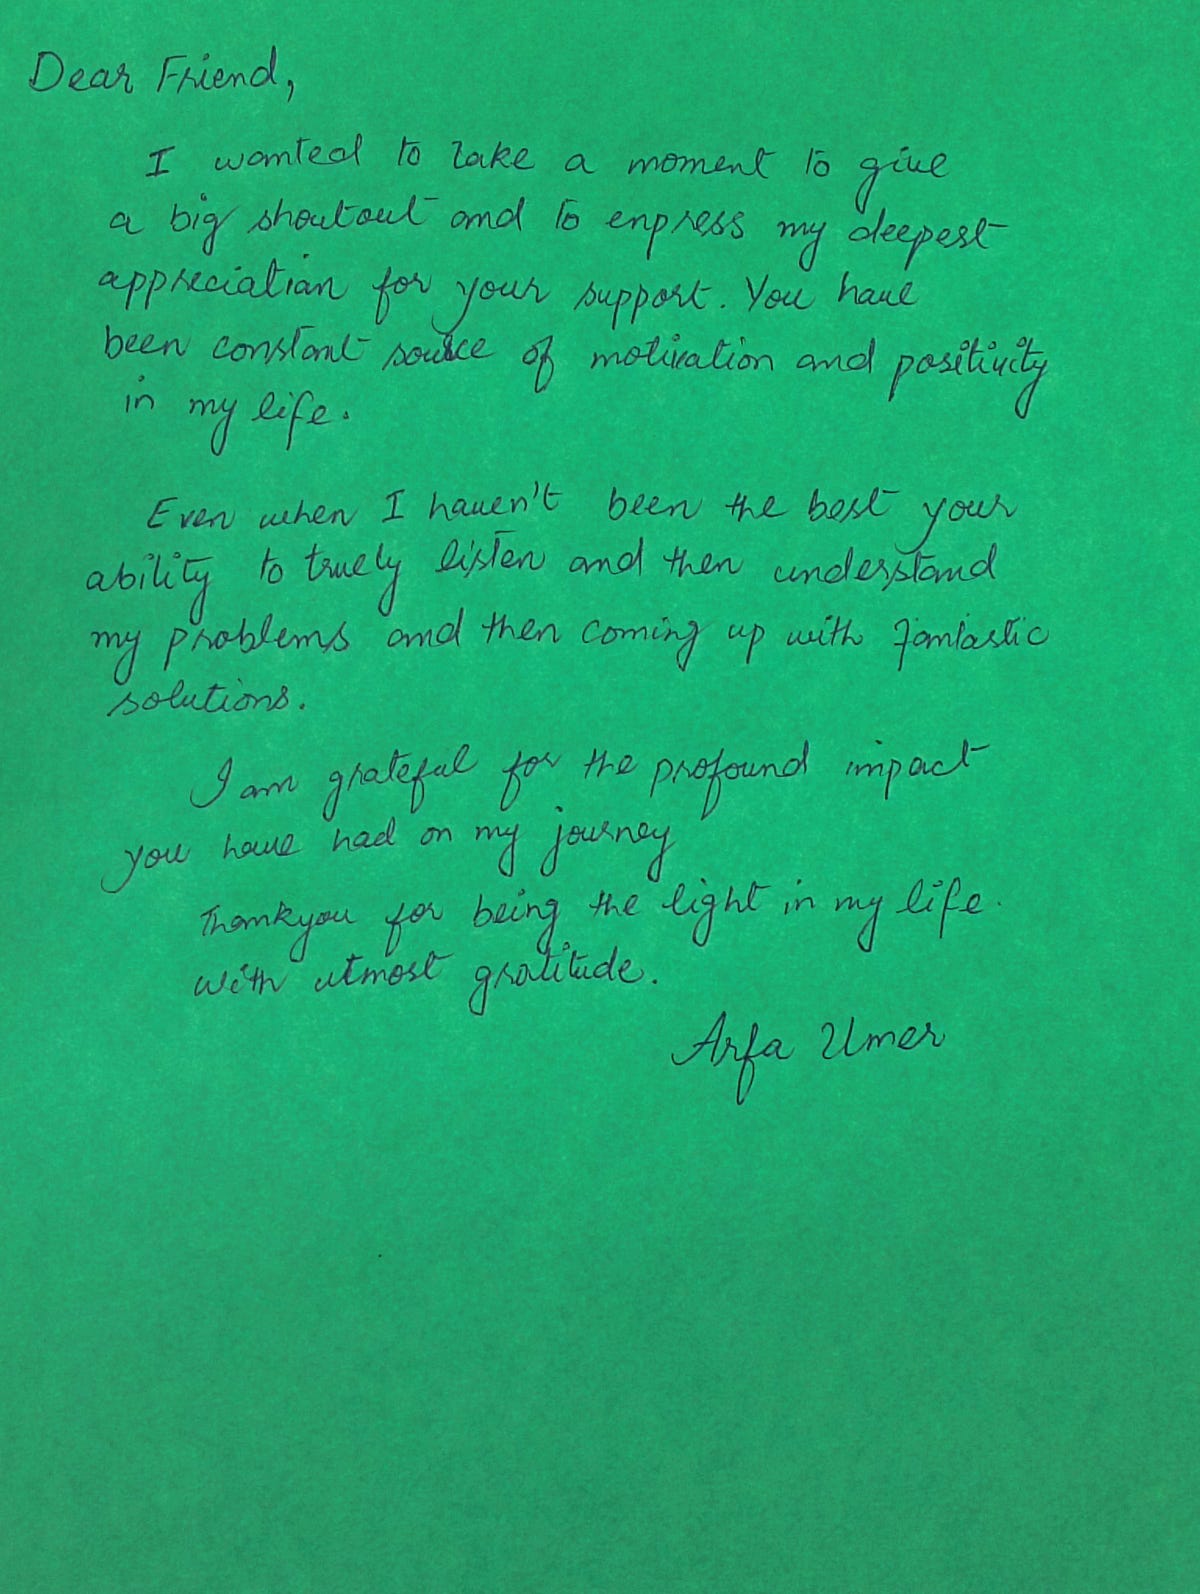 Dear Friend,
I wanted to take a moment to give
a big shoutout and to express my deepest
appreciation for your support. You have
been constant source of motivation and positivity
in my life.
Even when I haven't been the best your
ability to truely listen and then understand
my problems and then coming up with fantastic
solutions.
I am grateful for the profound impact
you have had on my journey
Thankyou for being the light in my life.
with utmost gratitude.
Arfa Umer